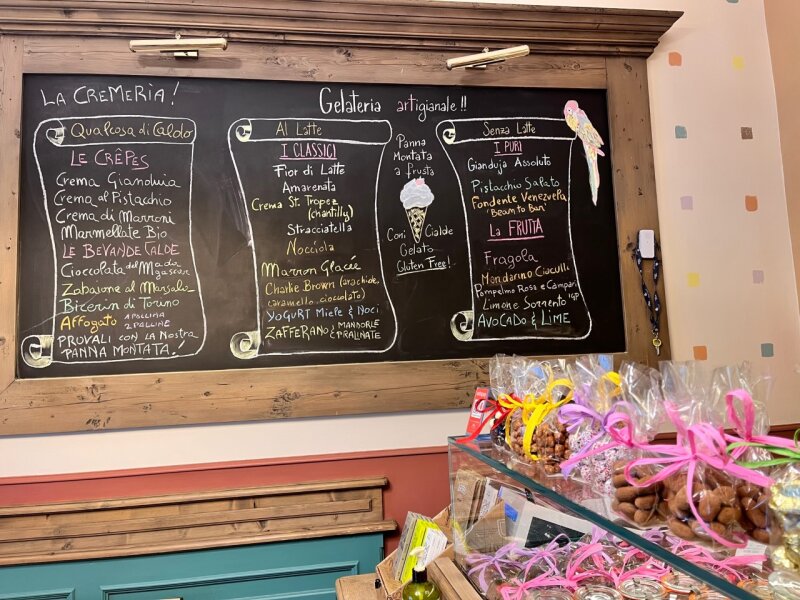 LA CREMERIA!
Gelateria artigianale!!
Qualcosa di Caldo
LE CRÊPES
Crema Gianduia
Crema al Pistacchio
Crema di Marroni
Marmellate Bio
LE BEVANDE CALDE
Cioccolata del Madagascar
Zabaione al Marsala
Bicerin di Torino
Affogato 1 PALLINA
2 PALLINE
PROVALI CON LA NOSTRA
PANNA MONTATA!
Al Latte
I CLASSICI
Fior di Latte
Amarenata
Crema St. Tropez
(chantilly)
Stracciatella
Nocciola
Marron Glacée
Charlie Brown (arachide,
caramello, cioccolato)
YOGURT Miele & Noci
ZAFFERANO & MANDORLE
PRALINATE
Panna
Montata
a frusta
Coni Cialde
Gelato
Gluten Free!
Senza Latte
I PURI
Gianduja Assoluta
Pistacchio Salato
Fondente Venezuela
'Bean to Bar'
La FRUTTA
Fragola
Mandarino Ciaculli
Pompelmo Rosa e Campari
Limone Sorrento IGP
AVOCADO & LIME